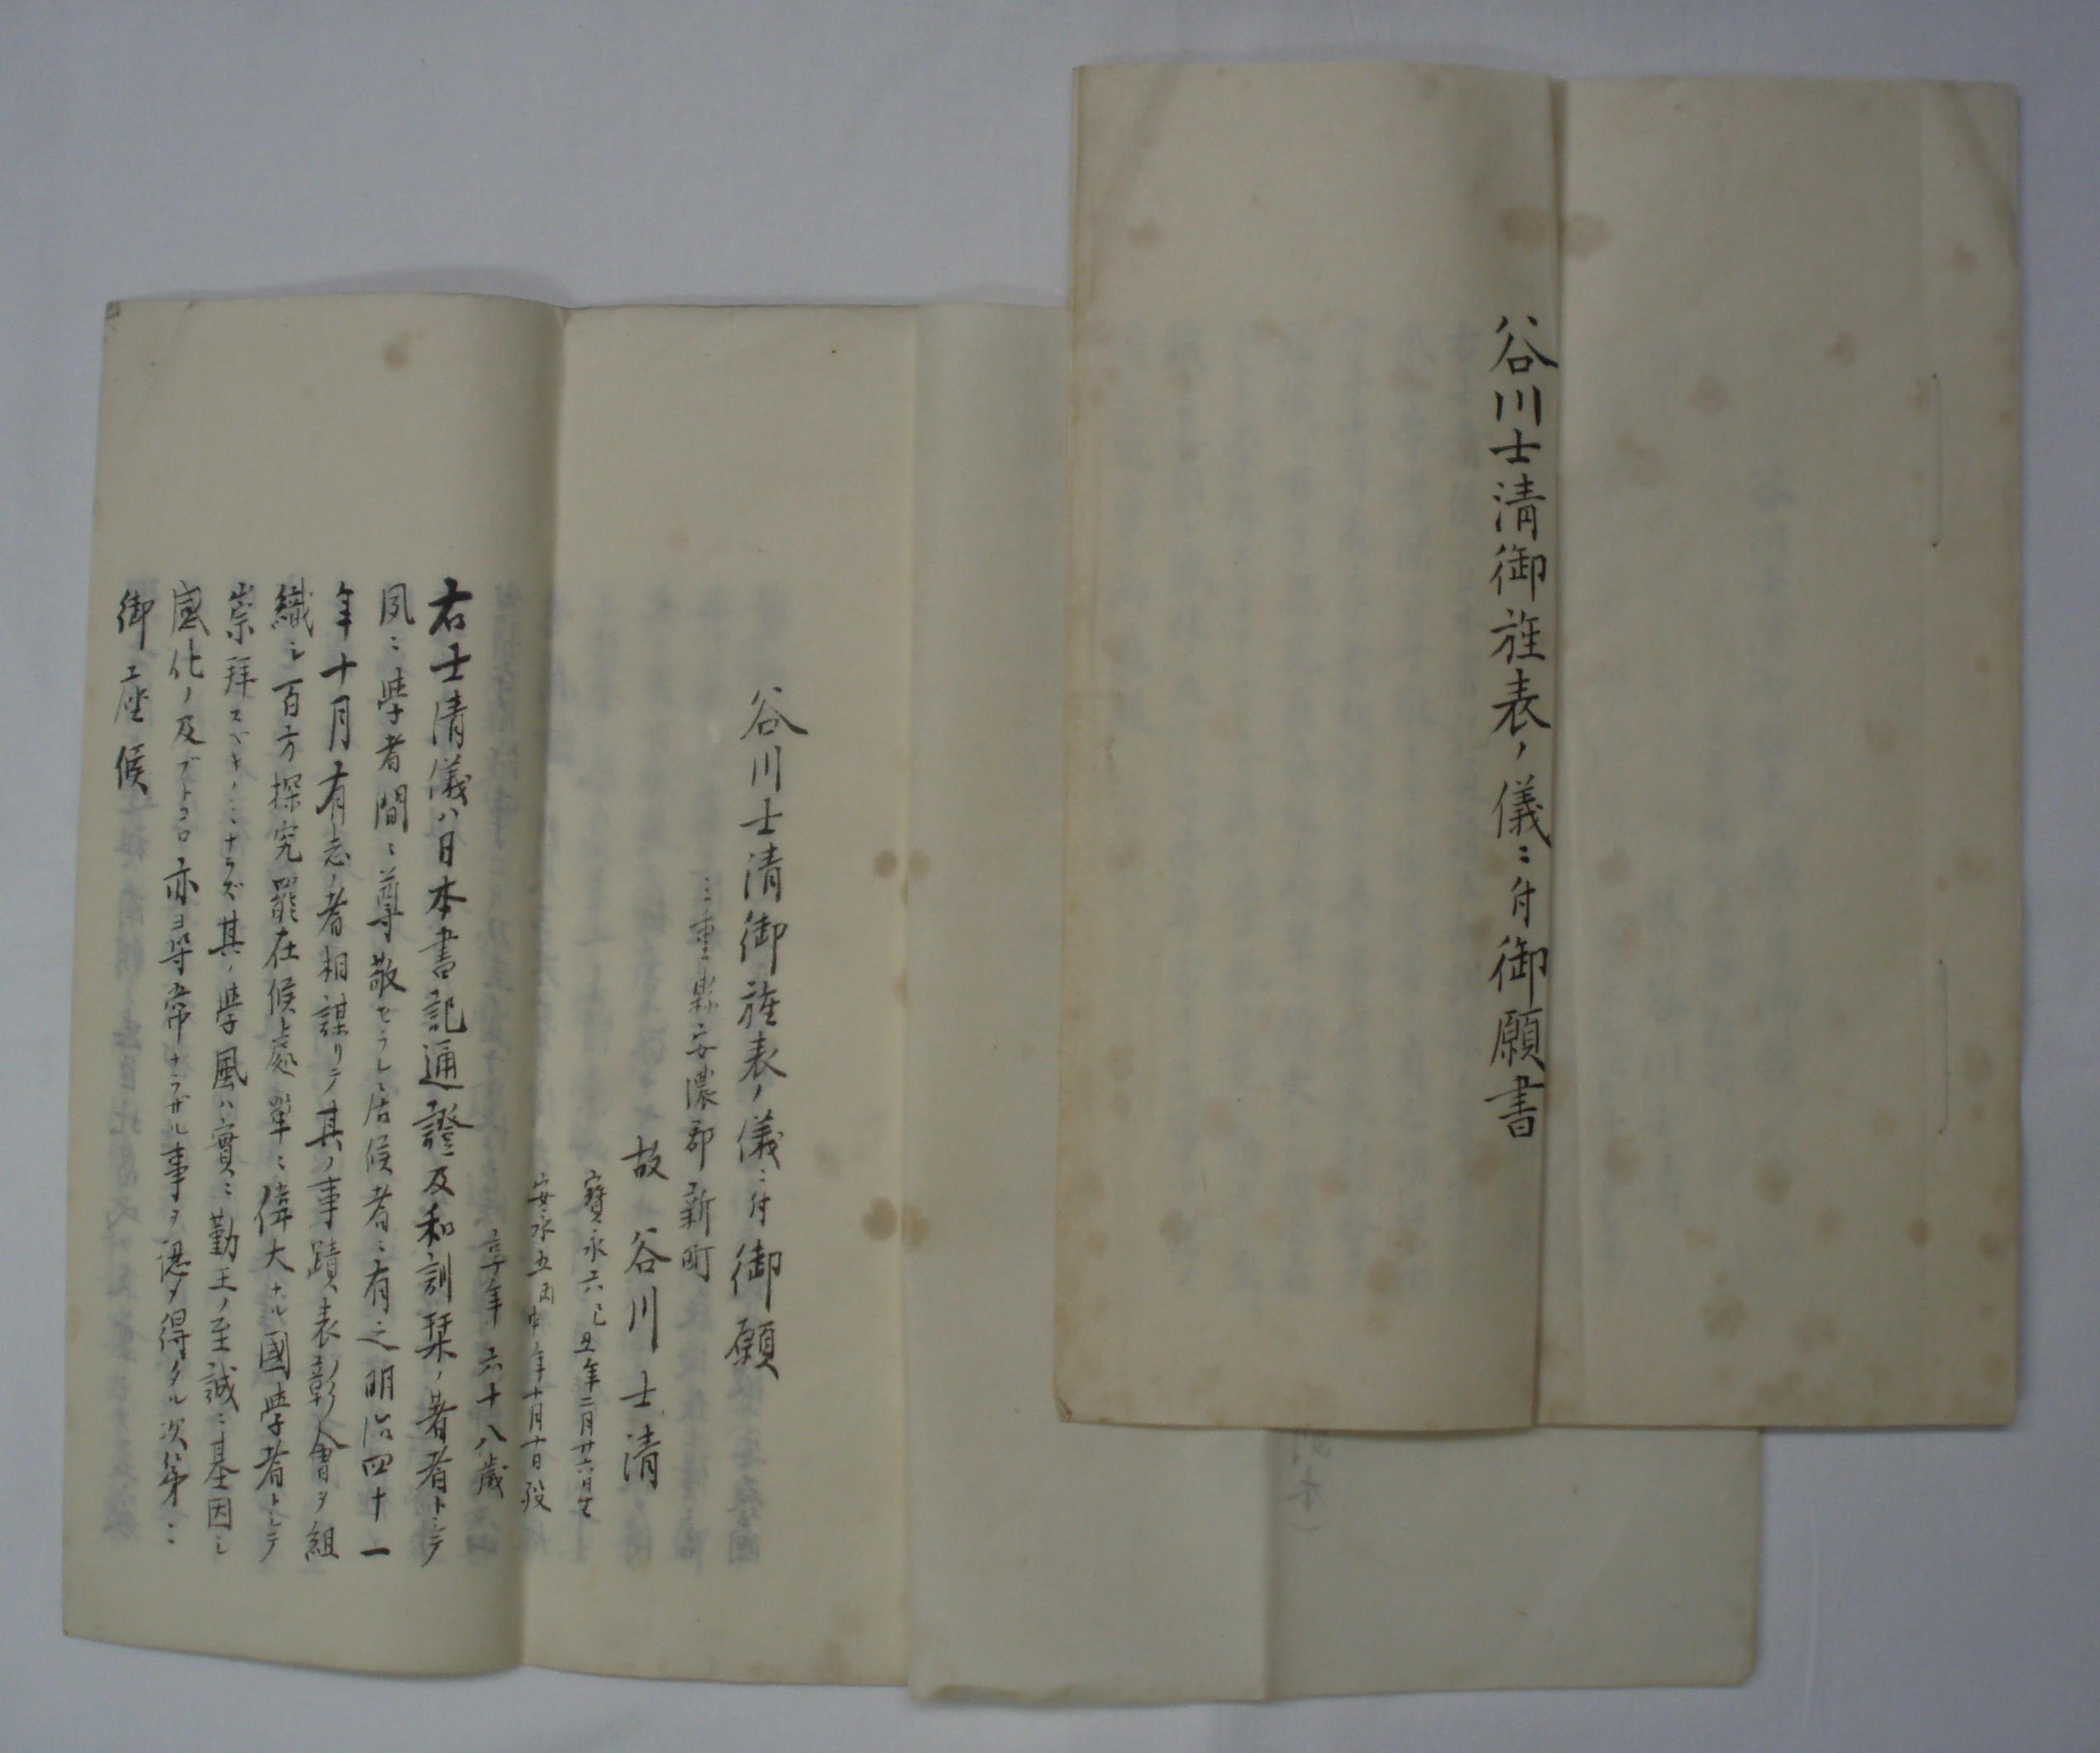 谷川士清御旌表ノ儀ニ付御願書
谷川士清御旌表ノ儀ニ付御願
三重縣安濃郡新町
故 谷川士清
寳永六己丑年二月廿六日生
安永五丙申年十月十日歿
享年六十八歳
右士清儀ハ日本書記通證及和訓栞ノ著者トシテ
夙ニ學者間ニ尊敬セラレ居候者ニ有之明治四十一
年十月有志ノ者相謀リテ其ノ事蹟表彰會ヲ組
織シ百方探究罷在候處單ニ偉大ナル國學者トシテ
崇拜スベキノミナラズ其ノ學風ハ實ニ勤王ノ至誠ニ基因シ
感化ノ及ブトコロ亦ヨ尋常ナラザル事ヲ認メ得タル次第ニ
御座候